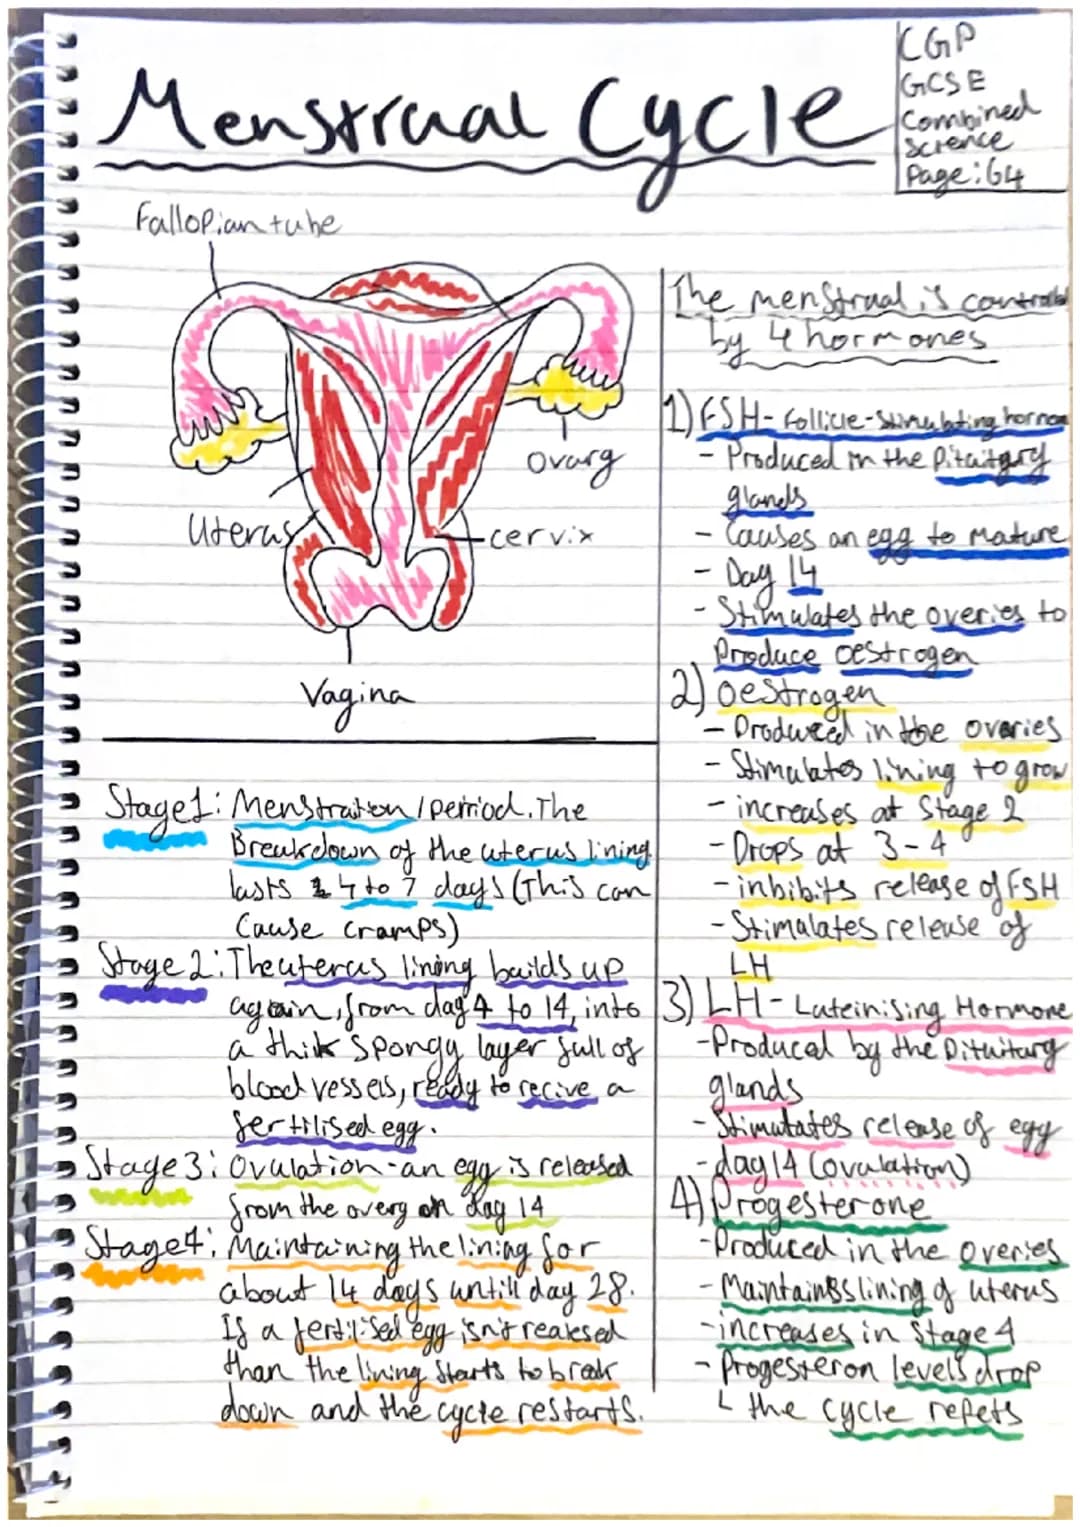 Menstraal Cycle
CGP
GCSE
Combined
Science
Page: 64
Fallopian tube
Ovary
Uterus
cervix
Vagina
The menstraal is controlled
by 4 hormones
1) FSH - Follicle-Stimulating hormon
- Produced in the Pituitary
glands
- Causes an egg to Mature
- Day 14
- Stimulates the overies to
Produce oestrogen
2) Oestrogen
- Produced in the ovaries
- Stimulates lining to grow
- increases at Stage 2
- Drops at 3-4
- inhibits release of FSH
- Stimalates release of
LH
3) LH - Luteinising Hormone
- Produced by the Pituitary
glands
- Stimulates release of egg
- day 14 (ovulation)
4) Progesterone
- Produced in the overies
- Maintains lining of uterus
- increases in Stage 4
- Progesteron levels drop
└ the cycle repets
Stage 1: Menstration / period. The
Breakdown of the uterus lining
lasts 4 to 7 days (This can
Cause cramps)
Stage 2: The uterus lining builds up
again, from day 4 to 14, into
a thik spongy layer full of
blood vessels, ready to recive a
fertilised egg.
Stage 3: Ovulation - an egg is released
from the overy on day 14
Stage 4: Maintaining the lining for
about 14 days untill day 28.
If a fertilised egg isn't realesed
than the lining starts to break
down and the cycle restarts.